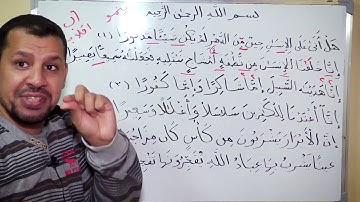 بسم الله الرحمن الرحيم
هَلْ أَتَى عَلَى الْإِنسَانِ حِينٌ مِّنَ الدَّهْرِ لَمْ يَكُن شَيْئًا مَّذْكُورًا (١)
إِنَّا خَلَقْنَا الْإِنسَانَ مِن نُّطْفَةٍ أَمْشَاجٍ نَّبْتَلِيهِ فَجَعَلْنَاهُ سَمِيعًا بَصِيرًا
إِنَّا هَدَيْنَاهُ السَّبِيلَ إِمَّا شَاكِرًا وَإِمَّا كَفُورًا (٣)
إِنَّا أَعْتَدْنَا لِلْكَافِرِينَ سَلَاسِلَا وَأَغْلَالًا وَسَعِيرًا
إِنَّ الْأَبْرَارَ يَشْرَبُونَ مِن كَأْسٍ كَانَ مِزَاجُهَا
عَيْنًا يَشْرَبُ بِهَا عِبَادُ اللَّهِ يُفَجِّرُونَهَا تَفْجِيرًا